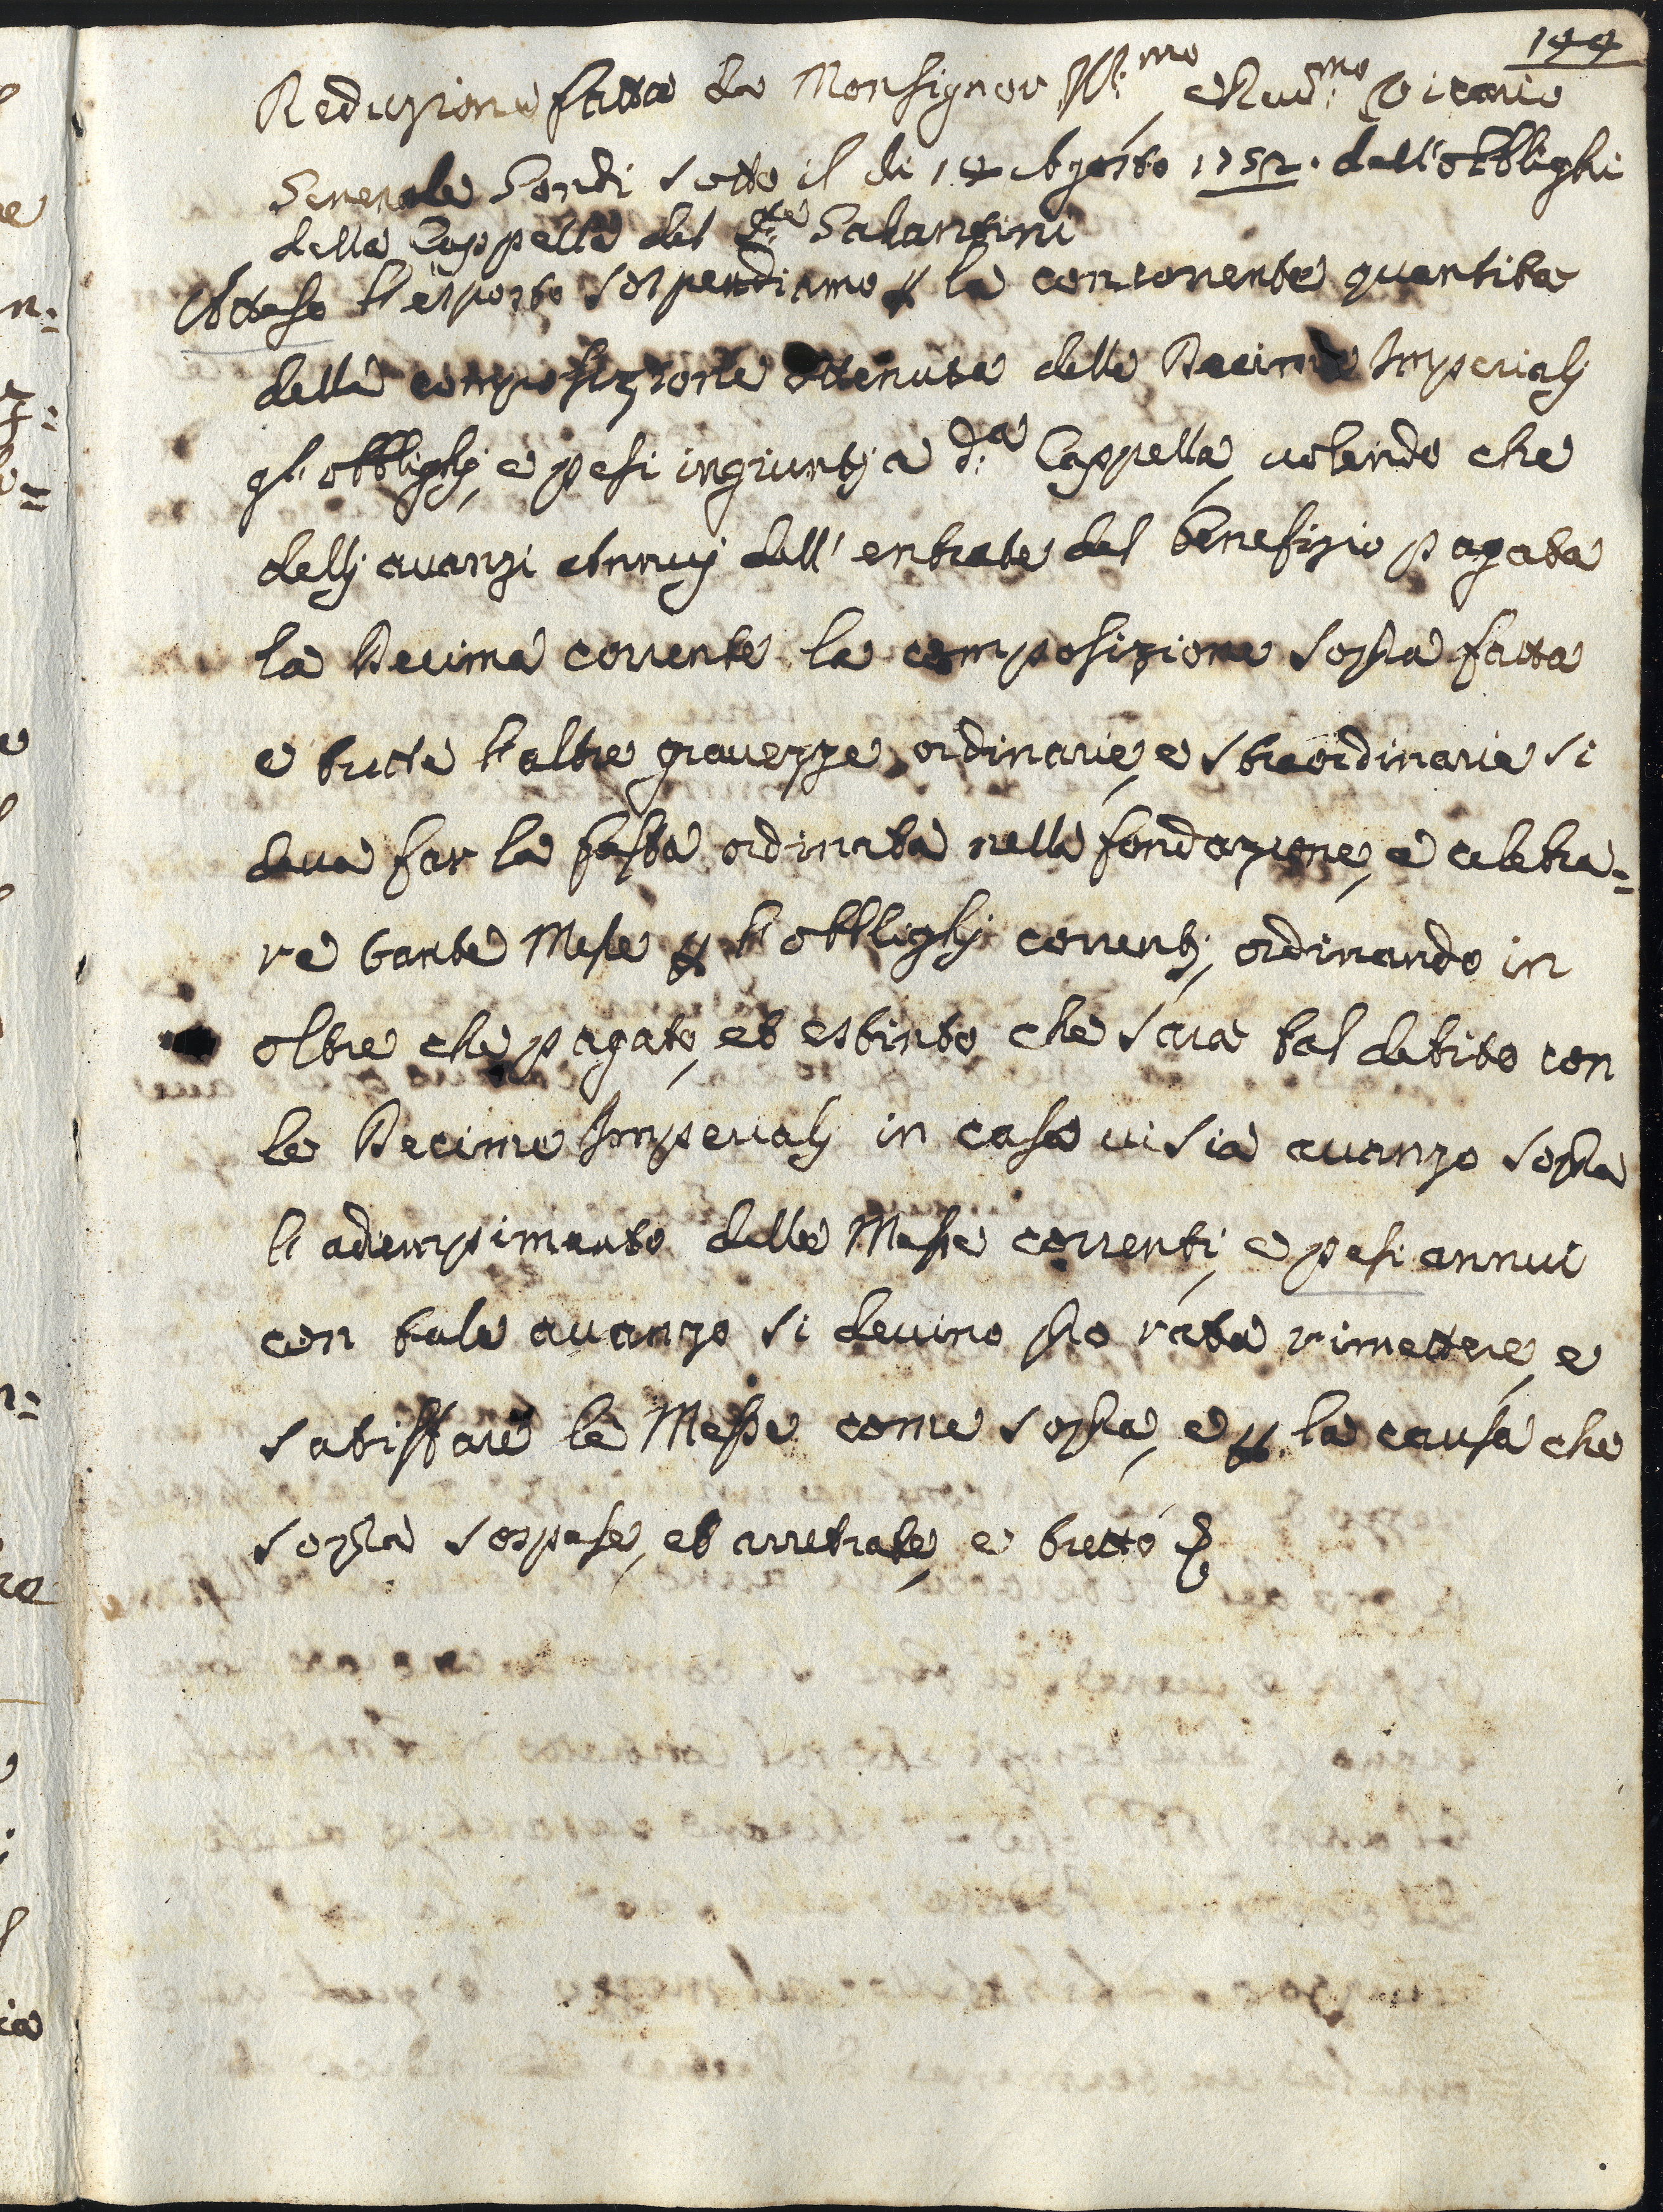 144
Reduzione fatta da Monsignor Ill:mo e Rud:mo Vicario
Generale Sardi sotto il di 14 Agosto 1752. dell'obblighi
della Cappella del Salantini
Atteso l'esposto sospendiamo p la concorrente quantita
della composizione ottenuta delle Decime Imperialj
gl'obblighj, e pesi ingiuntj a d:a Cappella, volendo che
dellj avanzi Annuj dell'entrate del benefizio pagata
la Decima corrente la composizione sopra fatta
e tutte l'altre gravezze, ordinarie, e straordinarie si
deva far la festa ordinata nella fondazione, e celebra=
re tante Messe p l'obblighj correntj, ordinando in
oltre che pagato, et estinto che sara tal debito con
le Decime Imperialj in caso vi sia avanzo sopra
l'adempimento delle Messe correnti, e pesi annui
con tale avanzo si devino pro rata rimettere, e
satisffare le Messe come sopra, e p la causa che
sopra sospese, et arretrate, e tutto